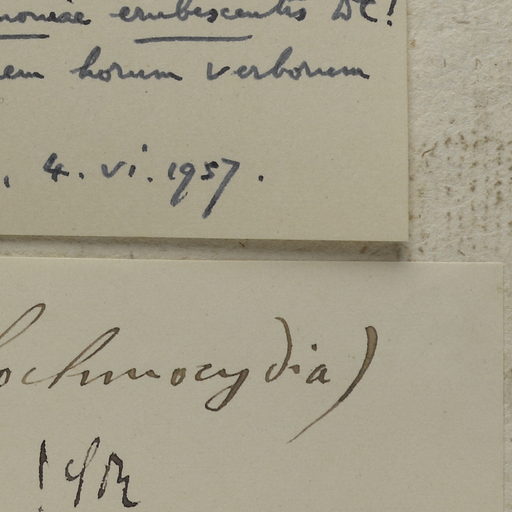 erubescentis DC!
horum verborum
4. vi. 1957.
ochmocydia)